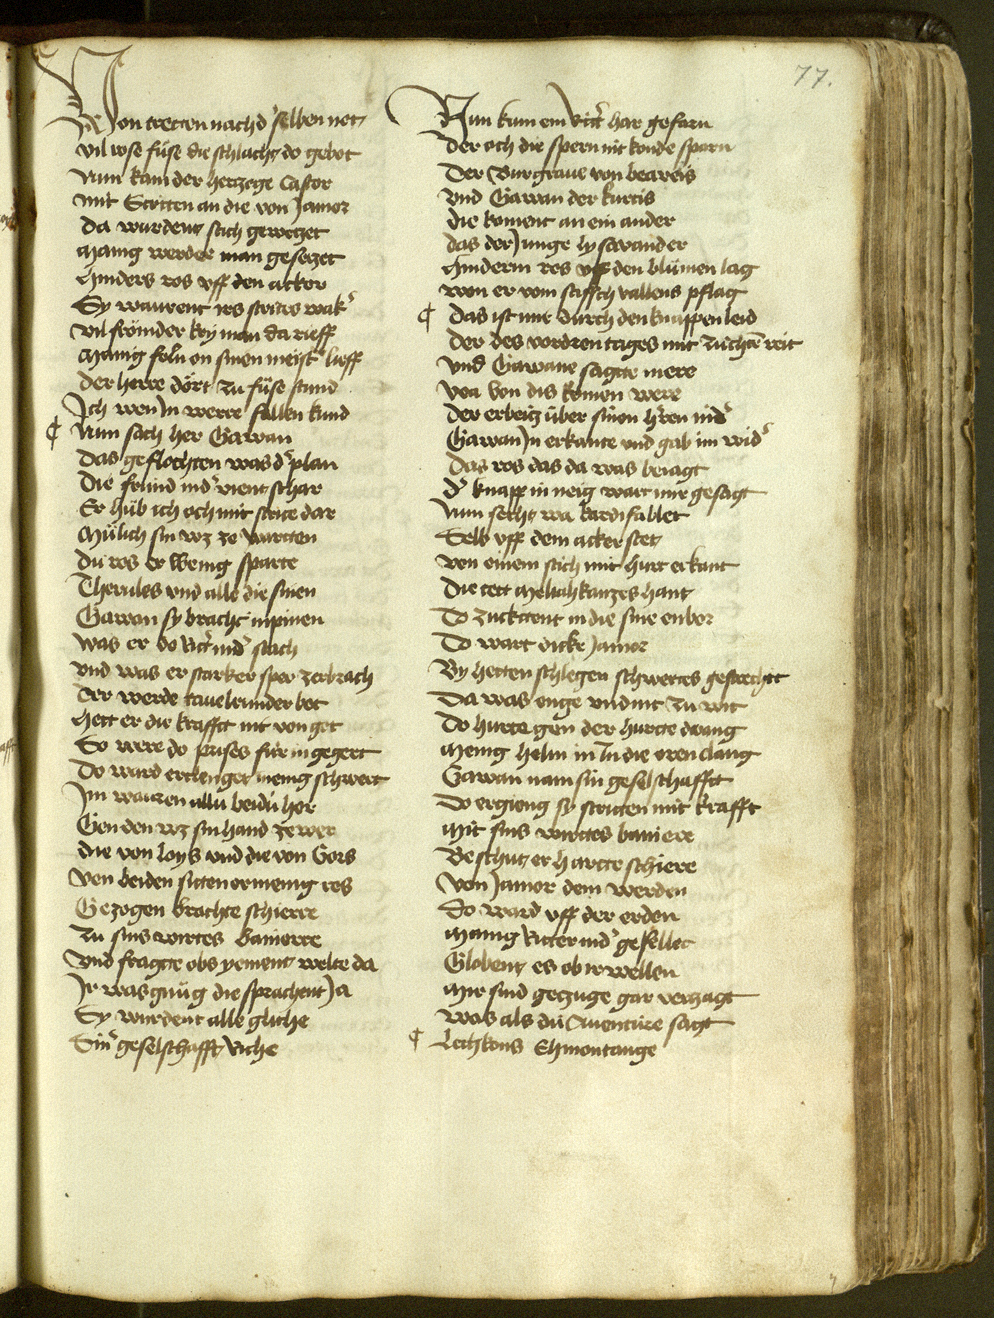 77.
Von tretten nach d' selben not
vil rose füse die schlacht do gebot
Nun kam der hertzoge Castor
mit Stritten an die von Jamor
Da wurdent stich gewetzet
Manig werder man gesetzet
Hinders ros vff den acker
Sy warent irs strites wak'
Vil frömder kry man da rieff
Manig foln on sinen meist' lieff
Der herre dört zu füse stund
Ich wen In werre fallen kund
¶ Nun sach her Gawan
Das geflochten was d' plan
Die fründ ind' vient schar
Er hüb ich och mit strite dar
Mülich sin wz ze warten
Dü ros er wenig sparte
Therules vnd alle die sinen
Gawan sy bracht in pinen
Was er do Ritt' nid' stach
Vnd was er starker sper zerbrach
Der werde tauelrunder bot
Hett er die krafft nit von got
So were do prises für in gegert
Do ward erclenget menig schwert
Im waren allü beidü her
Gen den wz sin hand ze wer
Die von loys vnd die von Gors
Von beiden siten er menig ros
Gezogen brachte schierre
Zu sins wirtes Banierre
Vnd fragte obs yement welte da
Ir was gnüg die sprachent Ja
Sy wurdent alle gliche
Sin' geselschafft riche
Nun kum ein Ritt' har gefarn
Der och die spern nit konde sparn
Der Burgraue von beaveis
Vnd Gawan der kurtis
Die koment an ein ander
das der Junge lysavander
Hinderm ros vff den blümen lag
wan er vom stich vallens pflag
¶ Das ist mir durch den knappen leid
Der des vordren tages mit zuchtē reit
Vnd Gawane sagtte mere
Wa von dis komen were
Der erbeitz über sinen h'ren nid'
Gawan In erkante vnd gab im wid'
Das ros das da was beiagt
D' knapp in neig wart mir gesagt
Nun secht wa kardisablet
Selb vff dem acker stet
Von einem stich mit hurt erkant
Die tett meliahkanzes hant
Do zucktent in die sine enbor
Do wart dicke Jamor
By herten schlegen schwertes geschrit
Da was enge vnd nit zu wit
Do hurte gen der hurtte drang
Menig helm in In die oren clang
Gawan nam sin geselschafft
Do ergieng sy stritten mit krafft
Mit sins wirttes baniere
Beschutz er hartte schiere
Von Jamor dem werden
Do ward vff der erden
Manig Ritter nid' gefellet
Globent es ob ir wellen
Mir sind gezüge gar verzagt
Was als dü Auentüre sagt
¶ Lechkons Ehmontange